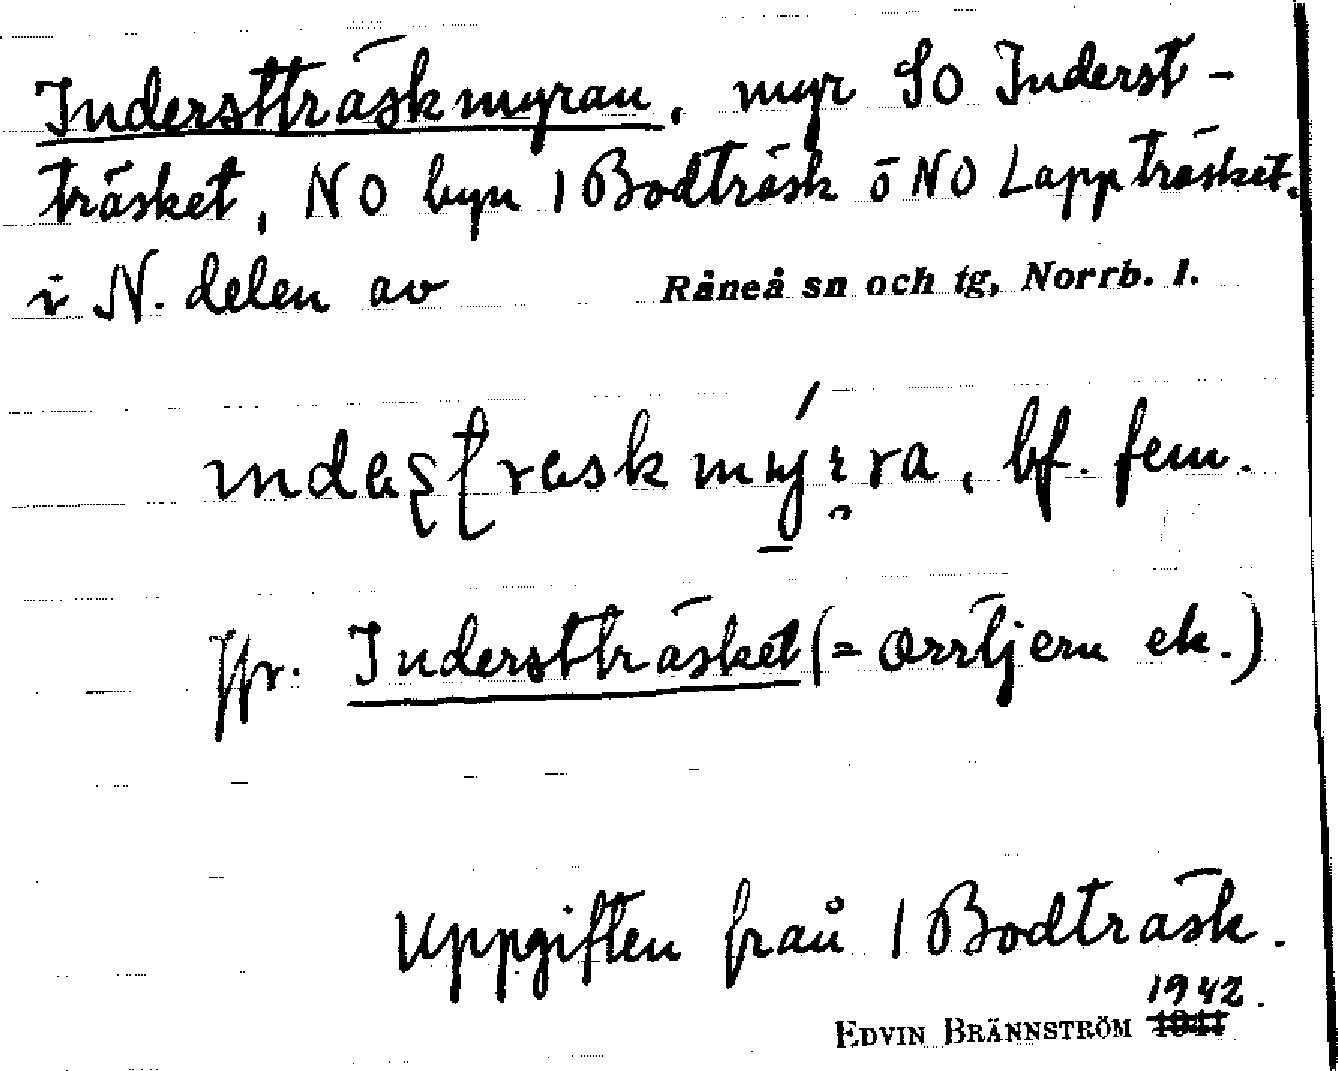 Inderstträskmyran, myr SO Inderst-
träsket, NO byn 1 Bodträsk o NO Lappträsket.
i N. delen av Råneå sn och tg, Norrb. l.
bf. fem.
Jfr. Inderstträsket (= Orrtjern ek.)
Uppgiften från 1 Bodträsk.
1942.
EDVIN BRÄNNSTRÖM 1941